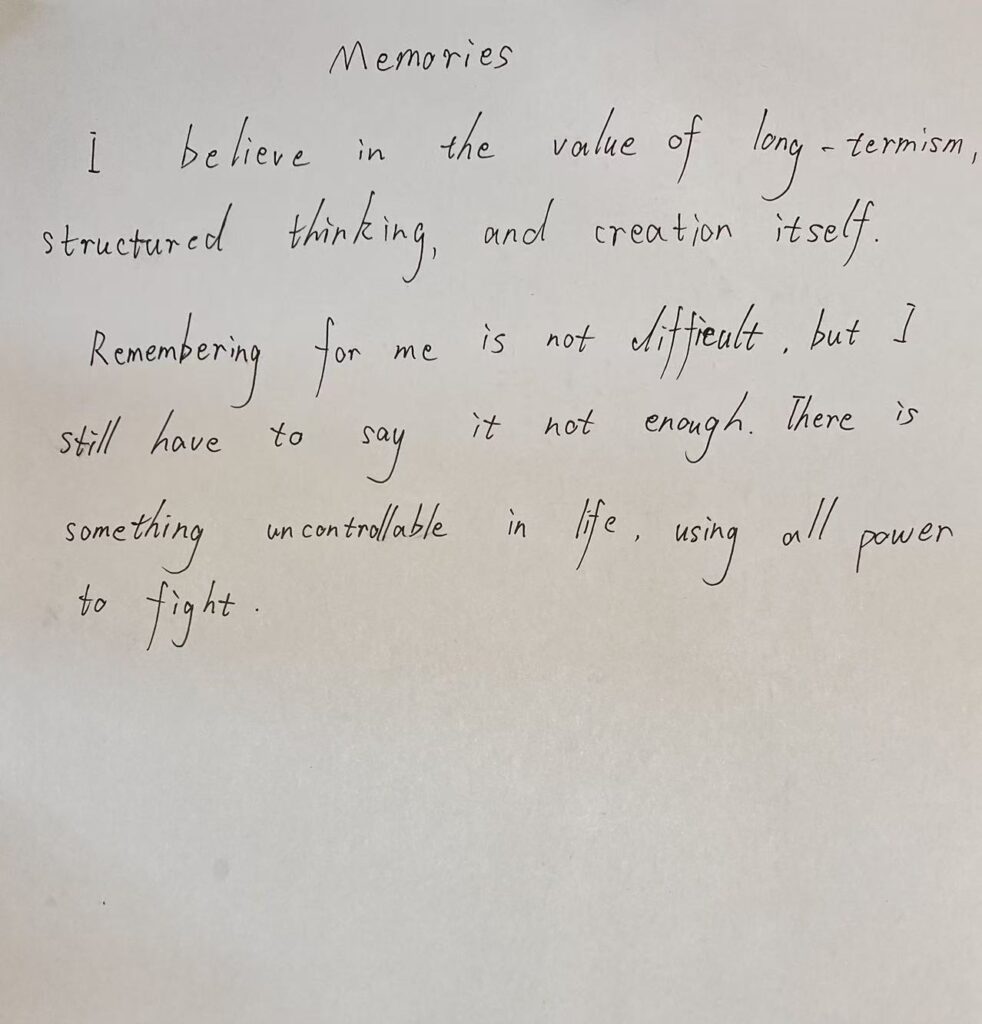 Memories
I believe in the value of long-termism,
structured thinking, and creation itself.
Remembering for me is not difficult, but I
still have to say it not enough. There is
something uncontrollable in life, using all power
to fight.